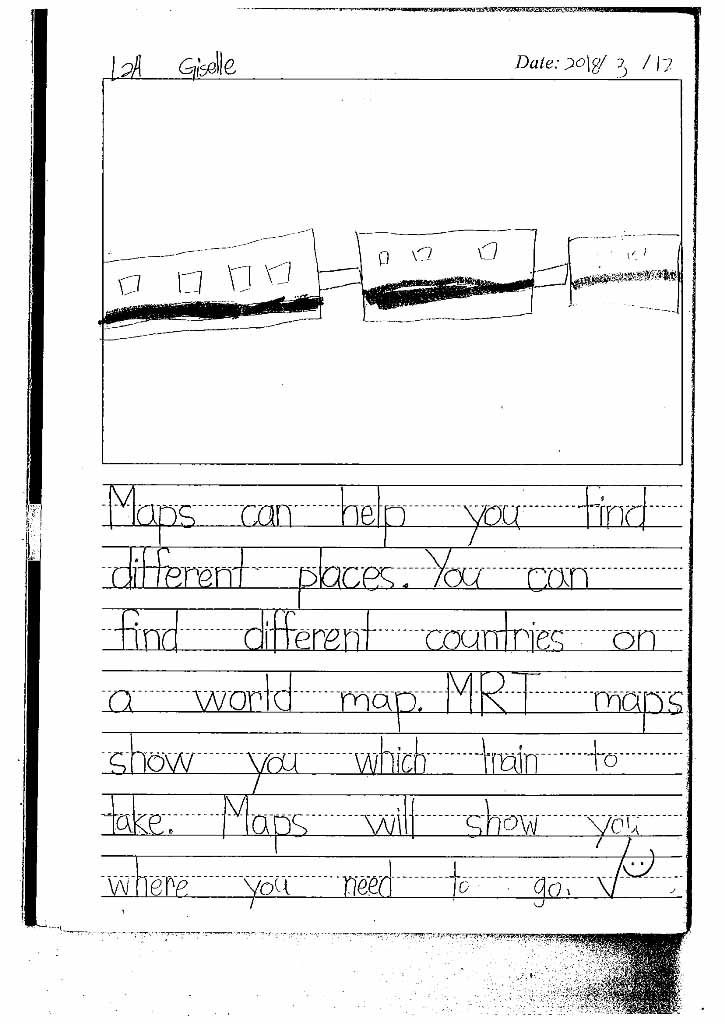 L2A Giselle Date: 2018/3/12
Maps can help you find
different places. You can
find different countries on
a world map. MRT maps
show you which train to
take. Maps will show you
where you need to go.